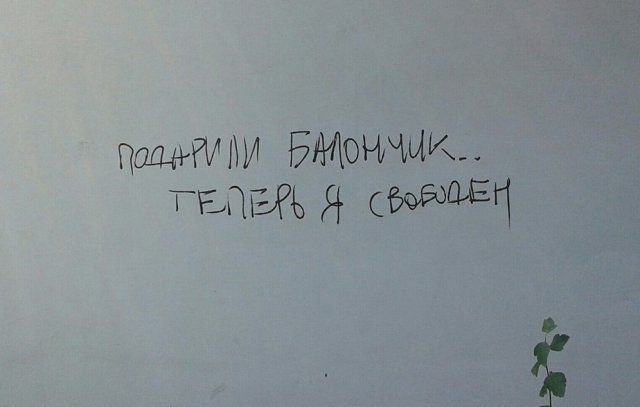 ПОДАРИЛИ БАЛОНЧИК..
ТЕПЕРЬ Я СВОБОДЕН